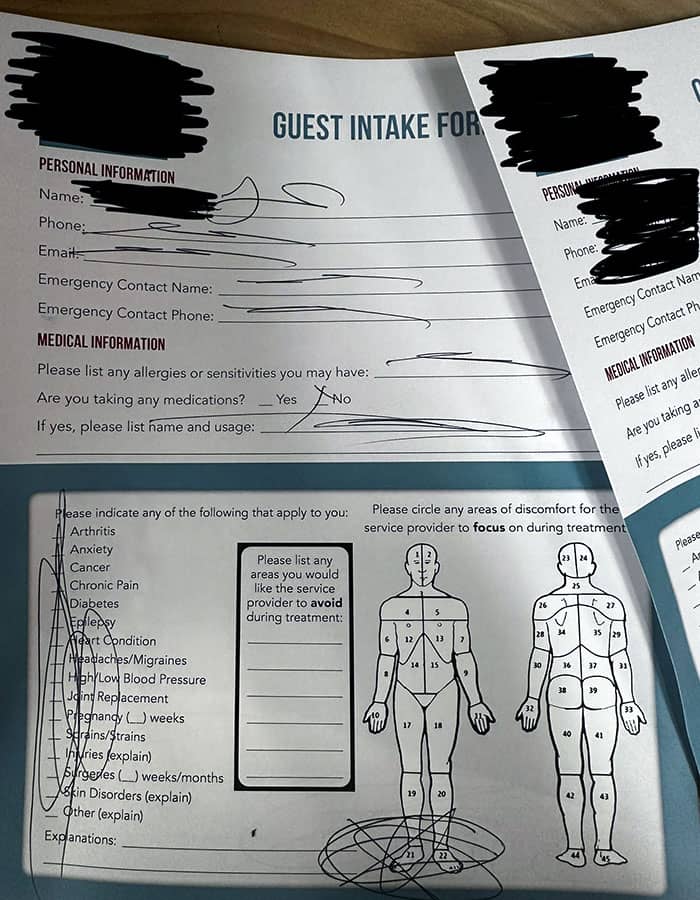 GUEST INTAKE FOR
PERSONAL INFORMATION
Name:
Phone:
Email:
Emergency Contact Name:
Emergency Contact Phone:
MEDICAL INFORMATION
Please list any allergies or sensitivities you may have:
Are you taking any medications? __ Yes __ No
If yes, please list name and usage:
Please indicate any of the following that apply to you:
Arthritis
Anxiety
Cancer
Chronic Pain
Diabetes
Epilepsy
Heart Condition
Headaches/Migraines
High/Low Blood Pressure
Joint Replacement
Pregnancy (__) weeks
Sprains/Strains
Injuries (explain)
Surgeries (__) weeks/months
Skin Disorders (explain)
Other (explain)
Explanations:
Please list any
areas you would
like the service
provider to avoid
during treatment:
Please circle any areas of discomfort for the
service provider to focus on during treatment
1 2
4 5
6 12 13 7
14 15
8 9
10
17 18
19 20
21 22
23 24
25
26 27
28 34 35 29
30 36 37 31
38 39
32 33
40 41
42 43
44 45
PERSONAL INFORMATION
Name:
Phone:
Ema
Emergency Contact Nam
Emergency Contact Ph
MEDICAL INFORMATION
Please list any aller
Are you taking a
If yes, please li
Please
Ar